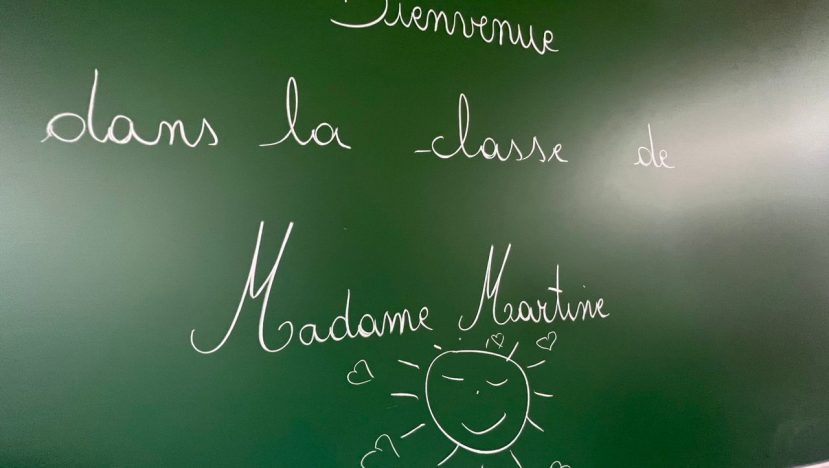 Bienvenue
dans la classe de
Madame Martine